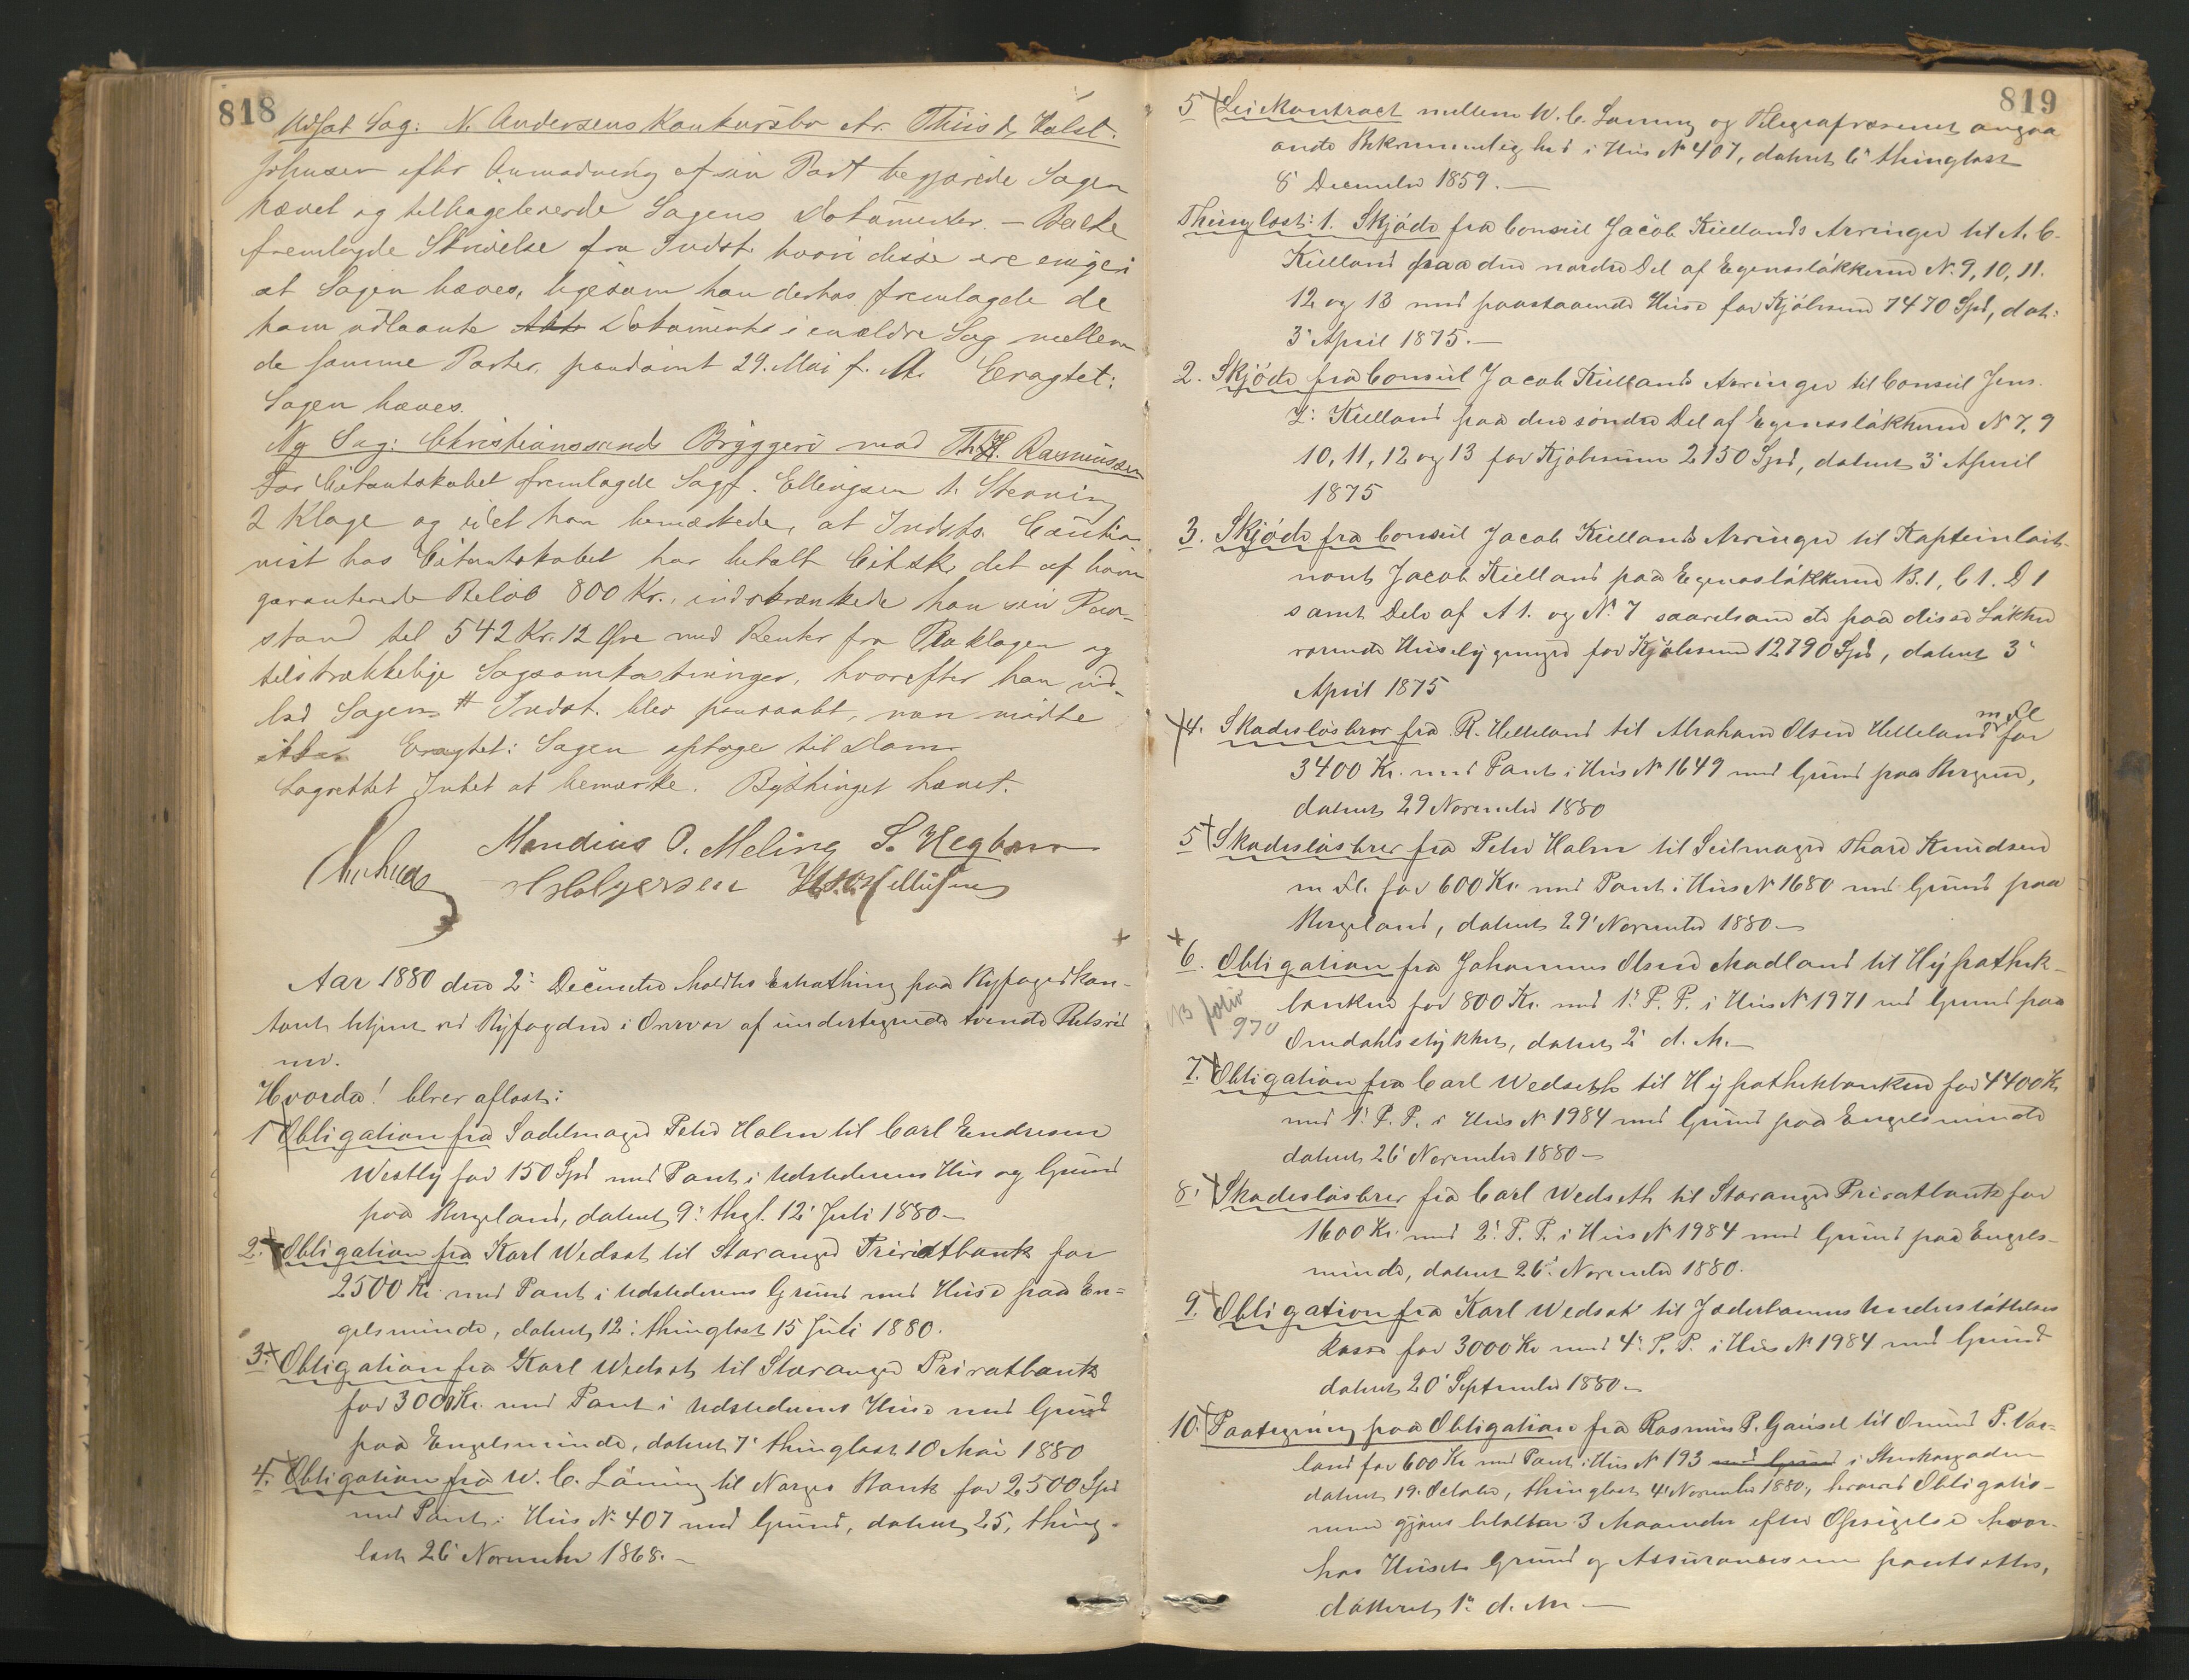 818
Udsat Sag: N. Andersens Konkursbo ctr. Thiis & Holst.
Johnsen efter Anmodning af sin Part begjærede Sagen
hævet og tilbageleverede Sagens Dokumenter. –
fremlagde Skrivelse fra Indst. hvori disse ere enige i
at Sagen hæves, ligesom han derhos fremlagde de
ham udlaante Dokumenter i en ældre Sag mellem
de samme Parter, paadømt 29. Mai f. A. Eragtet:
Sagen hæves.
Ny Sag: Christianssands Bryggeri mod Th. Rasmussen
For Citantskabet fremlagde Sagf. Ellingsen 1. Stevning
2 Klage og idet han bemærkede, at Indsts. Cautio-
nist hos Citantskabet har betalt Citsk. det af ham
garanterede Beløb 800 Kr., indskrænkede han sin Paa-
stand til 542 Kr. 12 Øre med Renter fra Paaklagen og
tilstrækkelige Sagsomkostninger, hvorefter han ind-
lod Sagen. Indst. blev paaraabt, men mødte
ikke. Eragtet: Sagen optages til Dom.
Lagrettet Intet at bemærke. Bythinget hævet.
Mandius O. Meling S. Hegbom
Holgersen
Aar 1880 den 2' December holdtes Extrathing paa Byfogedkon-
toret betjent ved Byfogden i Overvær af undertegnede tvende Retsvid-
ner.
Hvorda! blev aflæst:
1 Obligation fra Sadelmager Peder Holm til Carl Endresen
Westly for 150 Spd med Pant i Udstederens Hus og Grund
paa Bergeland, dateret 9' thgl. 12' Juli 1880 –
2. Obligation fra Karl Wedsat til Stavanger Privatbank for
2500 Kr. med Pant i Udstederens Grund med Huse paa En=
gelsminde, dateret 12' thinglæst 15 Juli 1880.
3. Obligation fra Karl Wedsat til Stavanger Privatbank
for 3000 Kr. med Pant i Udstederens Huse med Grund
paa Engelsminde, dateret 7' thinglæst 10 Mai 1880
4. Obligation fra W. C. Løning til Norges Bank for 2500 Spd
med Pant i Hus N. 407 med Grund, dateret 25, thing-
læst 26' November 1868. –
819
5 Leiekontract mellem W. C. Løning og Telegrafvæsenet angaa
ende Bekvemmelighed i Hus N. 407, dateret 6' thinglæst
8' December 1859. –
Thinglæst: 1. Skjøde fra Consul Jacob Kiellands Arvinger til A. C.
Kielland paa den nordre Del af Egenæsløkkerne N. 9, 10, 11.
12 og 13 med paastaaende Huse for Kjøbesum 7470 Spd, dat:
3' April 1875. –
2. Skjøde fra Consul Jacob Kiellands Arvinger til Consul Jens
Z. Kielland paa den søndre Del af Egenæsløkkerne N. 7, 9
10, 11, 12 og 13 for Kjøbesum 2150 Spd, dateret 3' April
1875
3. Skjøde fra Consul Jacob Kiellands Arvinger til Kapteinløit-
nant Jacob Kielland paa Egenæsløkkerne B. 1, C 1. D 1
samt Dele af A 1. og N. 7 saavelsom de paa disse Løkker
værende Husebygninger for Kjøbesum 12790 Spd, dateret 3'
April 1875
4. Skadesløsbrev fra R. Helleland til Abraham Olsen Helleland m Fl for
3400 Kr. med Pant i Hus N. 1649 med Grund paa
dateret 29 November 1880
5 Skadesløsbrev fra Peder Holm til Seilmager Thore Knudsen
m Fl. for 600 Kr. med Pant i Hus N. 1680 med Grund paa
Bergeland, dateret 29' November 1880 –
6. Obligation fra Johannes Olsen Madland til Hypothek-
banken for 800 Kr. med 1' P. P. i Hus N. 1971 med Grund paa
NB folio
970
Omdahlsstykket, dateret 2' d. M. –
7. Obligation fra Carl Wedseth til Hypothekbanken for 4400 Kr
med 1' P. P. i Hus N. 1984 med Grund paa Engelsminde
dateret 26' November 1880 –
8. Skadesløsbrev fra Carl Wedseth til Stavanger Privatbank for
1600 Kr. med 2' P. P. i Hus N. 1984 med Grund paa Engels-
minde, dateret 26' November 1880.
9. Obligation fra Karl Wedsat til Jæderbanens Understøttelses
kasse for 3000 Kr med 4' P. P. i Hus N. 1984 med Grund
dateret 20' September 1880 –
10. Paategning paa Obligation fra Rasmus P. Gausel til Omund P. Vor-
land for 600 Kr med Pant i Hus N. 193 med Grund i
dateret 19. October, thinglæst 4' November 1880, hvorved Obligatio-
nen gjøres betalbar 3 Maaneder efter Opsigelse hvor-
hos Husets Grund og Assurancesum pantsættes,
dateret 1' d. M. –